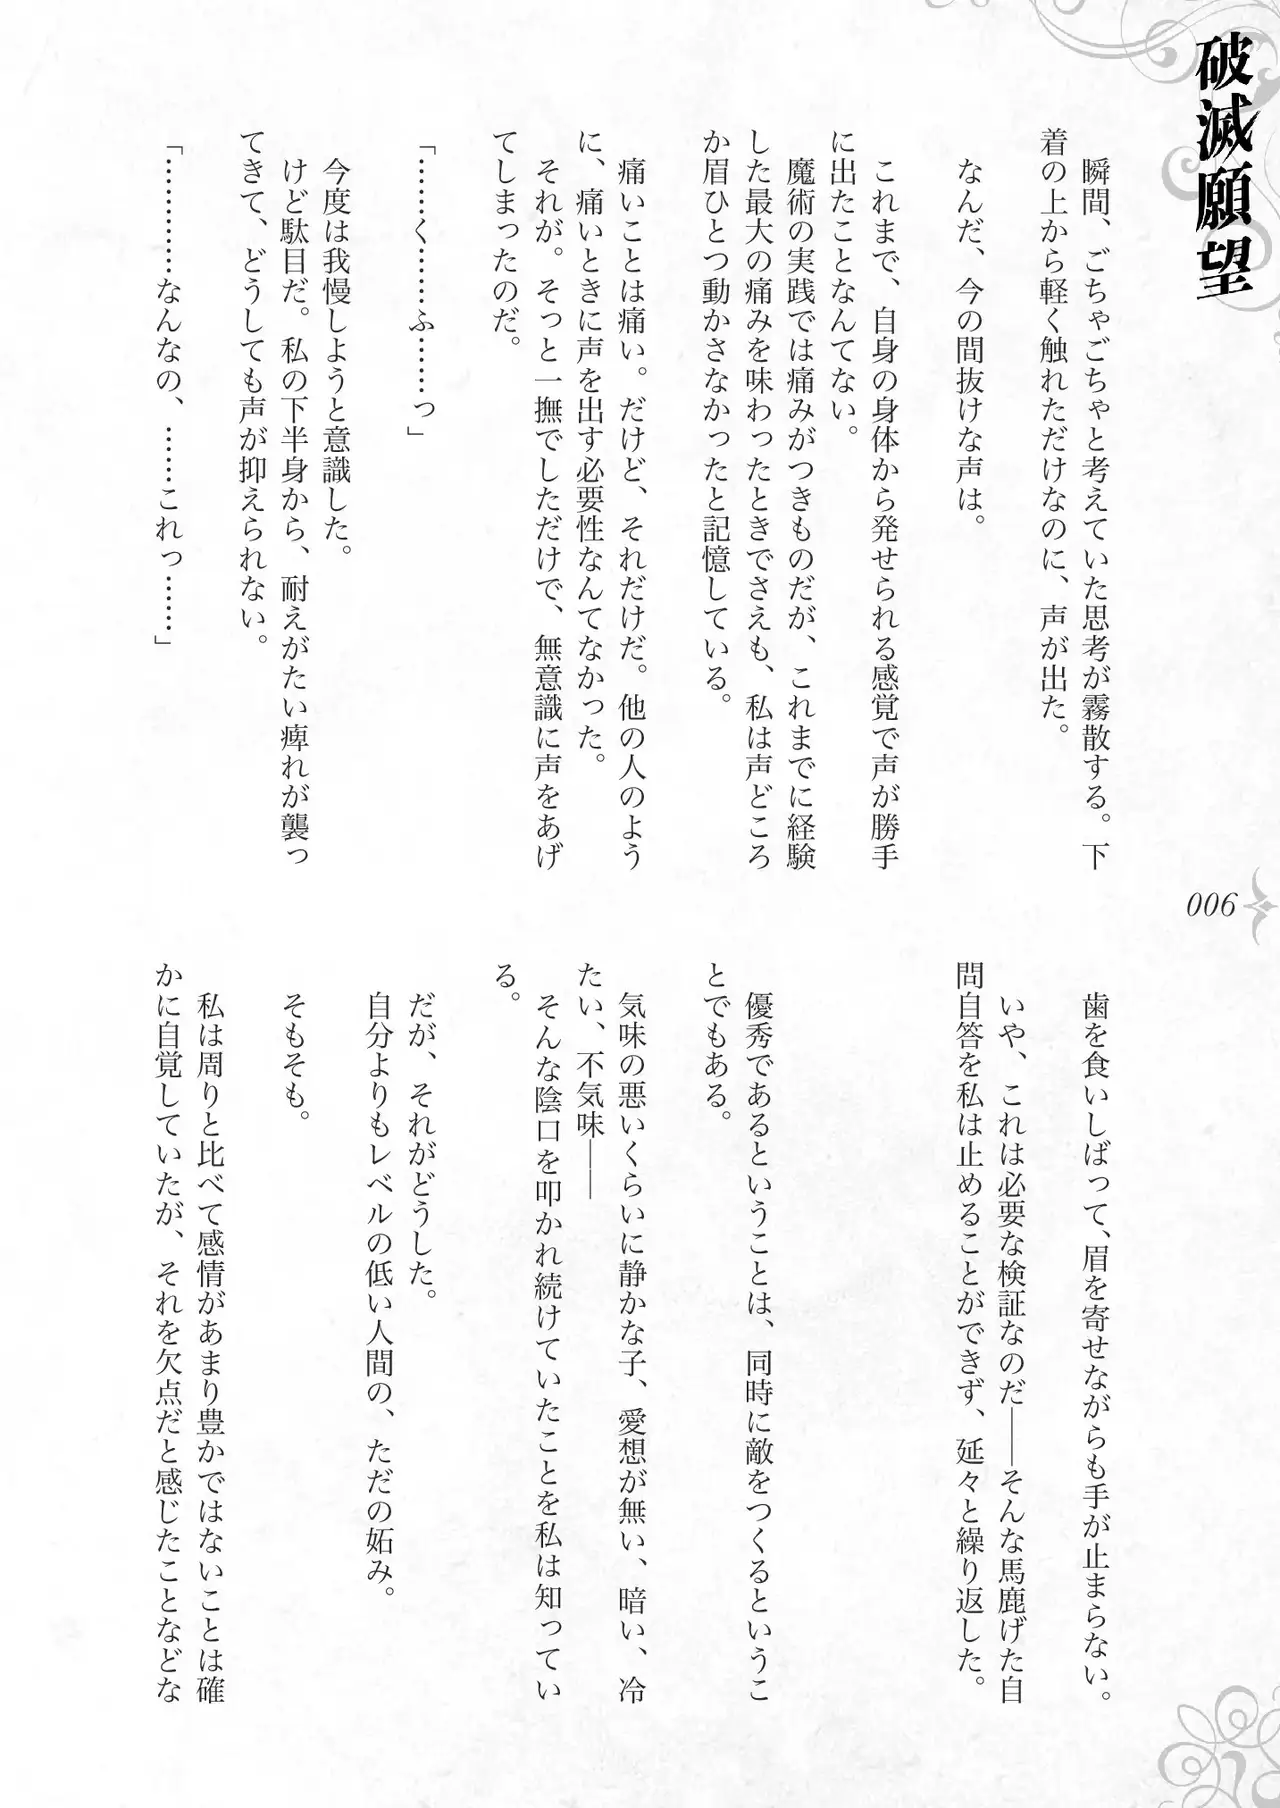 破滅願望
瞬間、ごちゃごちゃと考えていた思考が霧散する。下
着の上から軽く触れただけなのに、声が出た。
なんだ、今の間抜けな声は。
これまで、自身の身体から発せられる感覚で声が勝手
に出たことなんてない。
魔術の実践では痛みがつきものだが、これまでに経験
した最大の痛みを味わったときでさえも、私は声どころ
か眉ひとつ動かさなかったと記憶している。
痛いことは痛い。だけど、それだけだ。他の人のよう
に、痛いときに声を出す必要性なんてなかった。
それが。そっと一撫でしただけで、無意識に声をあげ
てしまったのだ。
「……く……ふ……っ」
今度は我慢しようと意識した。
けど駄目だ。私の下半身から、耐えがたい痺れが襲っ
てきて、どうしても声が抑えられない。
「…………なんなの、……これっ……」
歯を食いしばって、眉を寄せながらも手が止まらない。
いや、これは必要な検証なのだ――そんな馬鹿げた自
問自答を私は止めることができず、延々と繰り返した。
優秀であるということは、同時に敵をつくるというこ
とでもある。
気味の悪いくらいに静かな子、愛想が無い、暗い、冷
たい、不気味――
そんな陰口を叩かれ続けていたことを私は知ってい
る。
だが、それがどうした。
自分よりもレベルの低い人間の、ただの妬み。
そもそも。
私は周りと比べて感情があまり豊かではないことは確
かに自覚していたが、それを欠点だと感じたことなどな
006